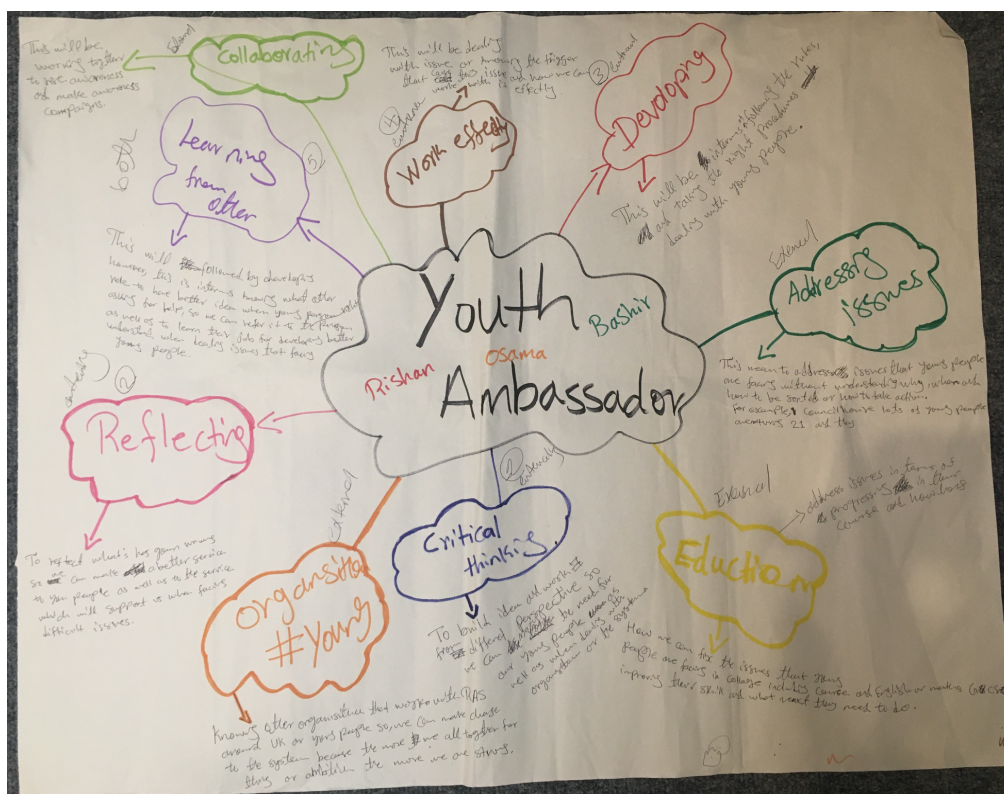 Collaborating
This will be
working together
to
and make awareness
campaigns.
This will be dealing
with issue or knowing the trigger
that this issue and how we can
work with it
④
Work
③
Devoloping
This will be in terms following the rules,
and taking the right Procedures
dealing with young people.
both
⑤
Learning
from
other
This will followed by developing
however, this is interms knowing what other
role to have better idea when young
asking for help, so we can refer it to the
as well as to learn their for developing better
understand when dealing issues that facing
young people.
External
Addressing
issues
This mean to address issues that young people
are facing without understanding why
how to be sorted or how to take action.
For example, lots of young people
21 and they
Youth
Ambassador
Rishan
Osama
Bashir
②
Reflecting
To reflect what's has gown wrong
so we can make a better service
to young people as well as to the service
which will support us when facing
difficult issues.
External
organsition
#Young
Knowing other organisation that works with RAS
around UK or young people so, we can make change
to the system because the more we all together for
thing or the more we are strong.
②
Critical
thinking.
To build idea and work
from different perspective so
we can the need for
our young people as
well as when dealing with
organstion or the system
External
Eduction
address issues in terms of
progress in term
course and how long
How we can fix the issues that young
people are facing in collage including course and English or maths
improving their skill and what next they need to do.